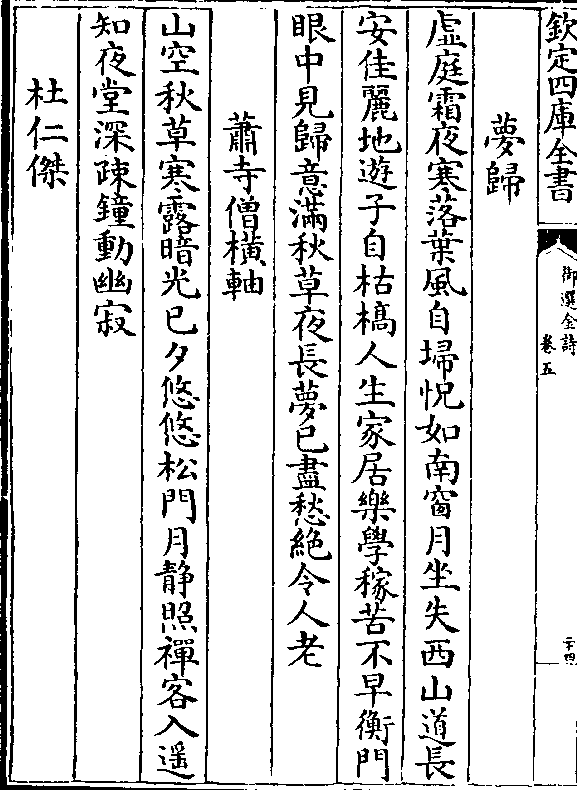 欽定四庫全書
御選金詩
卷五
二十四
夢歸
虚庭霜夜寒落葉風自埽怳如南窗月坐失西山道長
安佳麗地遊子自枯槁人生家居樂學稼苦不早衡門
眼中見歸意滿秋草夜長夢已盡愁絶令人老
蕭寺僧橫軸
山空秋草寒露暗光已夕悠悠松門月静照禪客入遥
知夜堂深疎鐘動幽寂
杜仁傑